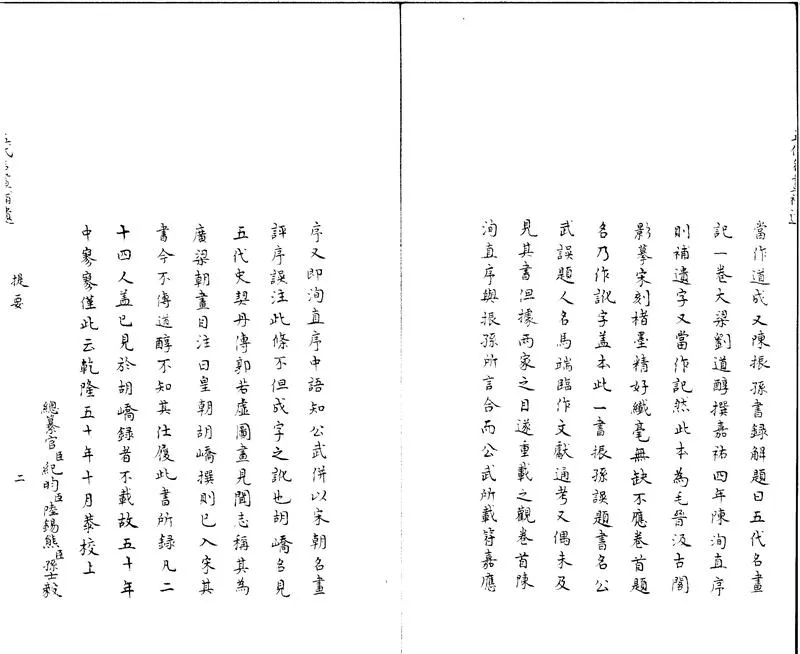 當作道成又陳振孫書録解題曰五代名畫
記一卷大梁劉道醇撰嘉祐四年陳洵直序
則補遺字又當作記然此本為毛晉汲古閣
影摹宋刻楮墨精好纎毫無缺不應卷首題
名乃作訛字盖本此一書振孫誤題書名公
武誤題人名馬端臨作文獻通考又偶未及
見其書但據兩家之目遂重載之觀卷首陳
洵直序與振孫所言合而公武所載符嘉應
序又即洵直序中語知公武併以宋朝名畫
評序誤注此條不但成字之訛也胡嶠名見
五代史契丹傳郭若虛圖畫見聞志稱其為
廣梁朝畫目注曰皇朝胡嶠撰則已入宋其
書今不傳道醇不知其仕履此書所録凡二
十四人盖已見於胡嶠録者不載故五十年
中寥寥僅此云乾隆五十年十月恭校上
總纂官臣紀昀臣陸錫熊臣孫士毅
提要
二